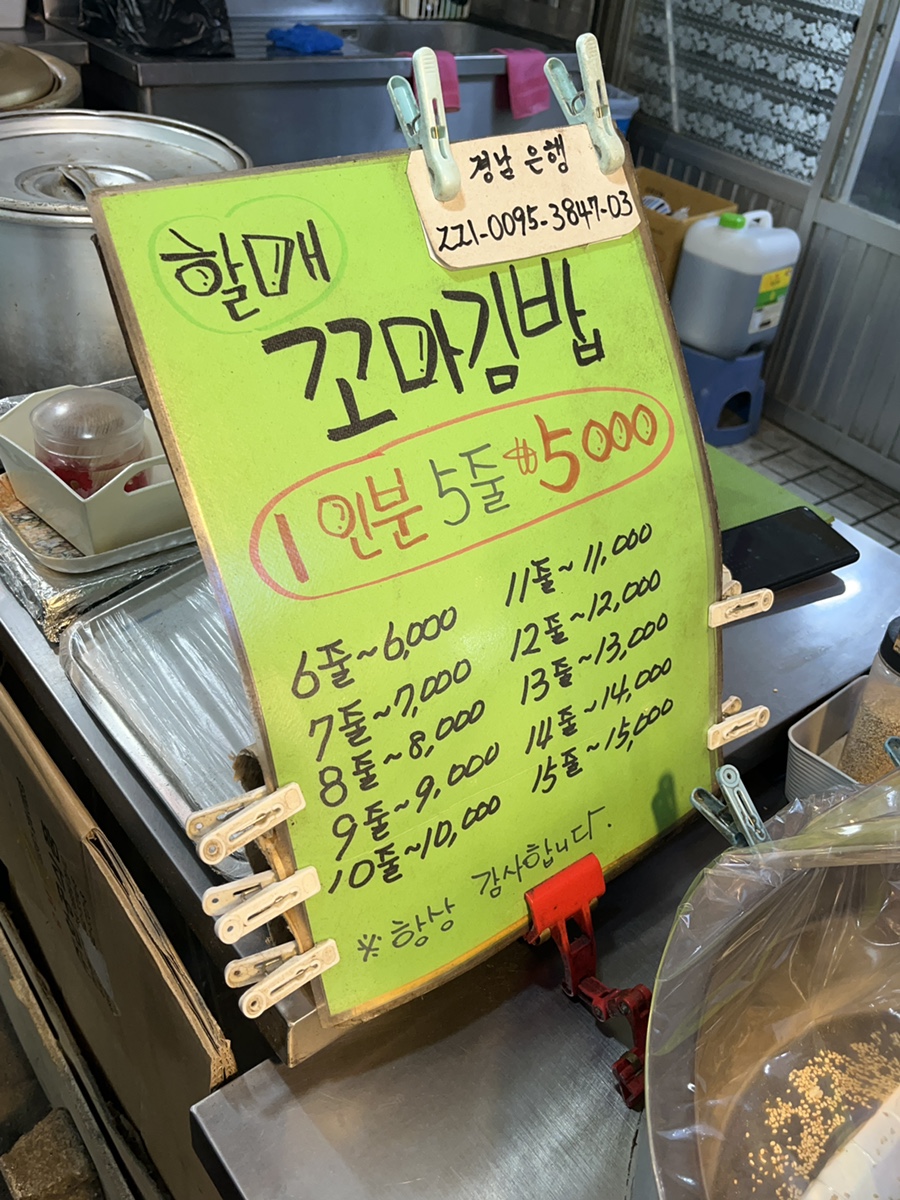 경남 은행
221-0095-3847-03
할매
꼬마김밥
1인분 5줄 ₩5000
6줄~6,000
7줄~7,000
8줄~8,000
9줄~9,000
10줄~10,000
11줄~11,000
12줄~12,000
13줄~13,000
14줄~14,000
15줄~15,000
※항상 감사합니다.